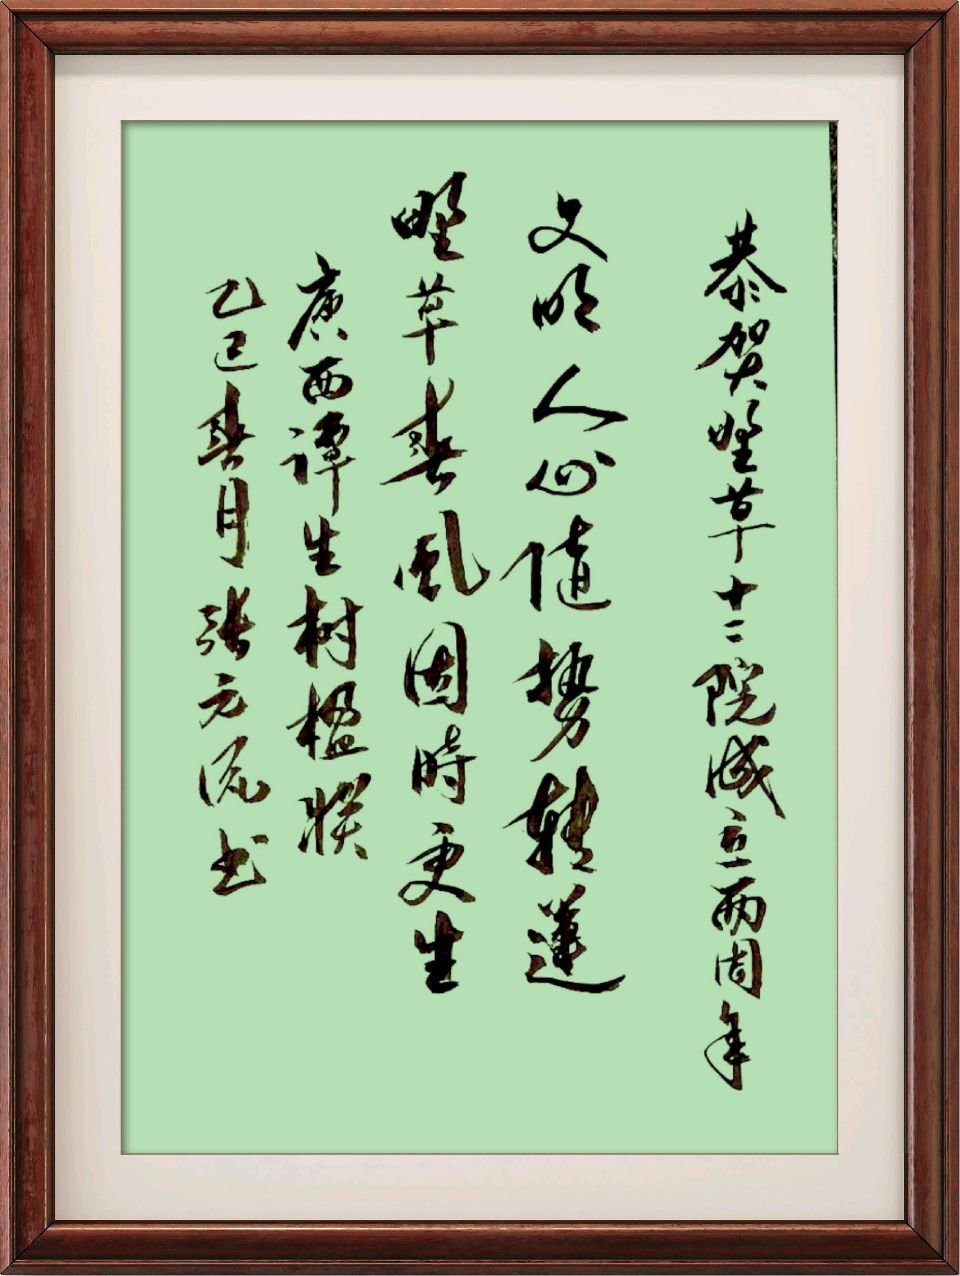 恭贺埜草十二院成立两周年
文明人心随势转运
野草春风因时更生
广西谭生树楹联
乙巳春月张元流书